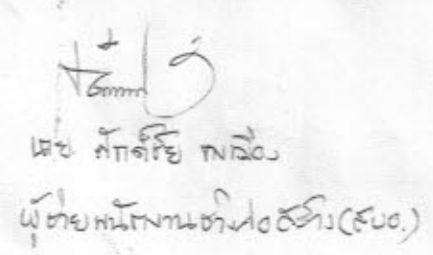 นาย ศักดิ์ชัย
ผู้ช่วยพนักงานช่างก่อสร้าง(สบอ.)